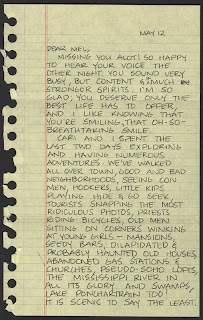 MAY 12
DEAR MEL,
MISSING YOU ALOT! SO HAPPY
TO HEAR YOUR VOICE THE
OTHER NIGHT. YOU SOUND VERY
BUSY, BUT CONTENT & IN MUCH
STRONGER SPIRITS. I'M SO
GLAD, YOU DESERVE ONLY THE
BEST LIFE HAS TO OFFER,
AND I LIKE KNOWING THAT
YOU'RE SMILING, THAT OH-SO-
BREATHTAKING SMILE.
CARI AND I SPENT THE
LAST TWO DAYS EXPLORING
AND HAVING NUMEROUS
ADVENTURES. WE'VE WALKED
ALL OVER TOWN, GOOD AND BAD
NEIGHBORHOODS, SEEING CON
MEN, HOOKERS, LITTLE KIDS
PLAYING HIDE & GO SEEK,
TOURISTS SNAPPING THE MOST
RIDICULOUS PHOTOS, PRIESTS
RIDING BICYCLES, OLD MEN
SITTING ON CORNERS WINKING
AT YOUNG GIRLS – MANSIONS,
SEEDY BARS, DILAPIDATED &
PROBABLY HAUNTED OLD HOUSES,
ABANDONED GAS STATIONS &
CHURCHES, PSEUDO-SOHO LOFTS,
THE MISSISSIPPI RIVER IN
ALL ITS GLORY AND SWAMPS,
LAKE PONCHARTRAIN TOO!
IT IS SCENIC TO SAY THE LEAST.